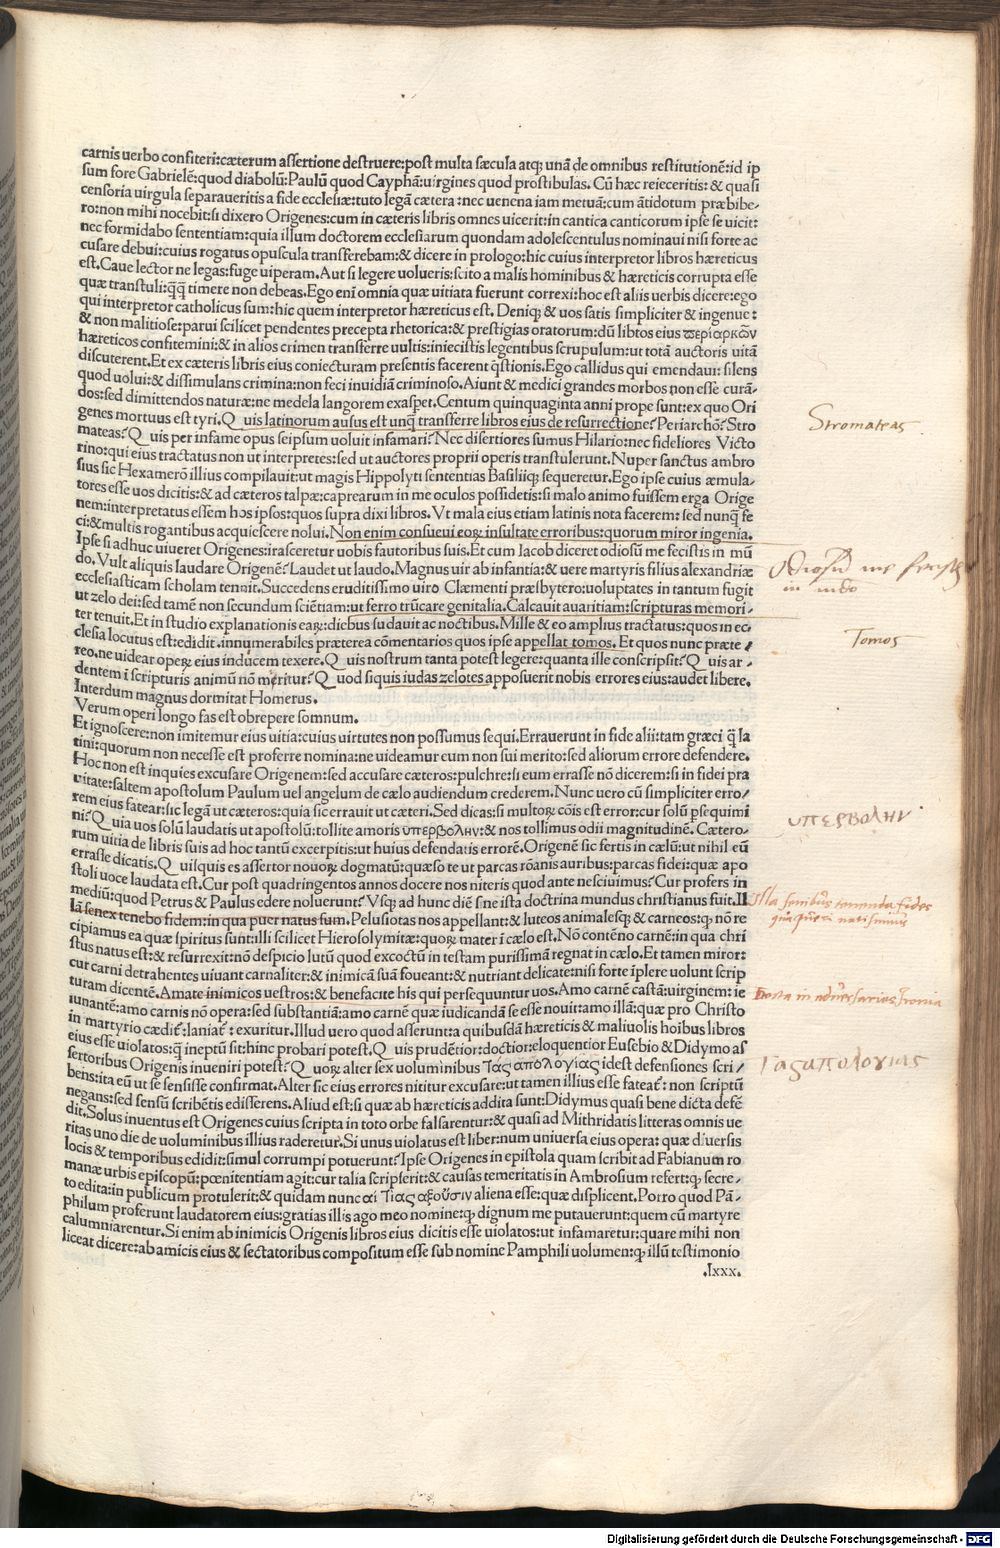 carnis uerbo confiteri:cæterum assertione destruere:post multa sæcula atq; unā de omnibus restitutionē:id ip
sum fore Gabrielē:quod diabolū:Paulū quod Cayphā:uirgines quod prostibulas. Cū hæc reieceritis:& quasi
censoria uirgula separaueritis a fide ecclesiæ:tuto legā cætera:nec uenena iam metuā:cum ātidotum præbibe-
ro:non mihi nocebit:si dixero Origenes:cum in cæteris libris omnes uicerit:in cantica canticorum ipse se uicit:
nec formidabo sententiam:quia illum doctorem ecclesiarum quondam adolescentulus nominaui nisi forte ac
cusare debui:cuius rogatus opuscula transferebam:& dicere in prologo:hic cuius interpretor libros hæreticus
est.Caue lector ne legas:fuge uiperam.Aut si legere uolueris:scito a malis hominibus & hæreticis corrupta esse
quæ transtuli:q̄q̄ timere non debeas.Ego enī omnia quæ uitiata fuerunt correxi:hoc est aliis uerbis dicere:ego
qui interpretor catholicus sum:hic quem interpretor hæreticus est. Deniq; & uos satis simpliciter & ingenue:
& non malitiose:parui scilicet pendentes precepta rhetorica:& prestigias oratorum:dū libros eius περίαρκῶν
hæreticos confitemini:& in alios crimen transferre uultis:iniecistis legentibus scrupulum:ut totā auctoris uitā
discuterent.Et ex cæteris libris eius coniecturam presentis facerent q̄stionis.Ego callidus qui emendaui: silens
quod uolui:& dissimulans crimina:non feci inuidiā criminoso.Aiunt & medici grandes morbos non esse curā-
dos:sed dimittendos naturæ:ne medela langorem exaspet.Centum quinquaginta anni prope sunt:ex quo Ori
genes mortuus est tyri.Q uis latinorum ausus est unq̄ transferre libros eius de resurrectione?Periarchō?Stro
mateas?Q uis per infame opus seipsum uoluit infamari?Nec disertiores sumus Hilario:nec fideliores Victo
rino:qui eius tractatus non ut interpretes:sed ut auctores proprii operis transtulerunt.Nuper sanctus ambro
sius sic Hexamerō illius compilauit:ut magis Hippolyti sententias Basiliiq; sequeretur.Ego ipse cuius æmula-
tores esse uos dicitis:& ad cæteros talpæ:caprearum in me oculos possidetis:si malo animo fuissem erga Orige
nem:interpretatus essem hos ipsos:quos supra dixi libros. Vt mala eius etiam latinis nota facerem: sed nunq̄ fe
ci:& multis rogantibus acquiescere nolui.Non enim consueui eoꝝ insultare erroribus:quorum miror ingenia.
Ipse si adhuc uiueret Origenes:irasceretur uobis fautoribus suis.Et cum Iacob diceret odiosū me fecistis in mū
do. Vult aliquis laudare Origenē?Laudet ut laudo.Magnus uir ab infantia:& uere martyris filius alexandriæ
ecclesiasticam scholam tenuit.Succedens eruditissimo uiro Clæmenti præsbytero:uoluptates in tantum fugit
ut zelo dei:sed tamē non secundum sciētiam:ut ferro trūcare genitalia.Calcauit auaritiam:scripturas memori-
ter tenuit.Et in studio explanationis eaꝝ:diebus sudauit ac noctibus. Mille & eo amplius tractatus:quos in ec-
clesia locutus est:edidit.innumerabiles præterea cōmentarios quos ipse appellat tomos. Et quos nunc præte
reo.ne uidear opeꝝ eius inducem texere.Q uis nostrum tanta potest legere:quanta ille conscripsit?Q uis ar-
dentem ī scripturis animū nō miritur?Q uod si quis iudas zelotes apposuerit nobis errores eius:audet libere.
Interdum magnus dormitat Homerus.
Verum operi longo fas est obrepere somnum.
Et ignoscere:non imitemur eius uitia:cuius uirtutes non possumus sequi.Errauerunt in fide alii:tam græci q̄ la
tini:quorum non necesse est proferre nomina:ne uideamur eum non sui merito:sed aliorum errore defendere.
Hoc non est inquies excusare Origenem:sed accusare cæteros:pulchre:si eum errasse nō dicerem:si in fidei pra
uitate:saltem apostolum Paulum uel angelum de cælo audiendum crederem. Nunc uero cū simpliciter erro/
rem eius fatear:sic legā ut cæteros:quia sic errauit ut cæteri. Sed dicas:si multoꝝ cōis est error:cur solū ꝓsequimi
ni?Q uia uos solū laudatis ut apostolū:tollite amoris υπερβολην:& nos tollimus odii magnitudinē. Cætero-
rum uitia de libris suis ad hoc tantū excerpitis:ut huius defendatis errorē.Origenē sic fertis in cælū:ut nihil eū
errasse dicatis.Q uisquis es assertor nouoꝝ dogmatū:quæso te ut parcas rōanis auribus:parcas fidei:quæ apo
stoli uoce laudata est.Cur post quadringentos annos docere nos niteris quod ante nesciuimus?Cur profers in
mediū:quod Petrus & Paulus edere noluerunt?Vsq; ad hunc diē sine ista doctrina mundus christianus fuit.Il
la senex tenebo fidem:in qua puer natus sum.Pelusiotas nos appellant:& luteos animalesq; & carneos:q̄ nō re
cipiamus ea quæ spiritus sunt:illi scilicet Hierosolymitæ:quoꝝ mater ī cælo est.Nō contēno carnē:in qua chri
stus natus est:& resurrexit:nō despicio lutū quod excoctū in testam purissimā regnat in cælo.Et tamen miror:
cur carni detrahentes uiuant carnaliter:& inimicā suā foueant:& nutriant delicate:nisi forte īplere uolunt scrip
turam dicentē.Amate inimicos uestros:& benefacite his qui persequuntur uos.Amo carnē castā:uirginem:ie
iunantē:amo carnis nō opera:sed substantiā:amo carnē quæ iudicandā se esse nouit:amo illā:quæ pro Christo
in martyrio cædiť:laniať:exuritur.Illud uero quod asserunt:a quibusdā hæreticis & maliuolis hoibus libros
eius esse uiolatos:q̄ ineptū sit:hinc probari potest.Q uis prudētior:doctior:eloquentior Eusebio & Didymo as
sertoribus Origenis inueniri potest?Q uoꝝ alter sex uoluminibus Τας απόλογίας idest defensiones scri/
bens:ita eū ut se sensisse confirmat.Alter sic eius errores nititur excusare:ut tamen illius esse fateať: non scriptū
negans:sed sensū scribētis edisserens.Aliud est:si quæ ab hæreticis addita sunt:Didymus quasi bene dicta defē
dit.Solus inuentus est Origenes cuius scripta in toto orbe falsarentur:& quasi ad Mithridatis litteras omnis ue
ritas uno die de uoluminibus illius raderetur.Si unus uiolatus est liber:num uniuersa eius opera: quæ diuersis
locis & temporibus edidit:simul corrumpi potuerunt?Ipse Origenes in epistola quam scribit ad Fabianum ro
manæ urbis episcopū:pœnitentiam agit:cur talia scripserit:& causas temeritatis in Ambrosium refert:q̄ secre-
to edita:in publicum protulerit:& quidam nunc αί Τίας αξοῦσιν aliena esse:quæ displicent.Porro quod Pā-
philum proferunt laudatorem eius:gratias illis ago meo nomine:q̄ dignum me putauerunt:quem cū martyre
calumniarentur.Si enim ab inimicis Origenis libros eius dicitis esse uiolatos:ut infamaretur:quare mihi non
liceat dicere:ab amicis eius & sectatoribus compositum esse sub nomine Pamphili uolumen:q̄ illū testimonio
.lxxx.
Stromateas.
Odiosū me fecistis
in mūdo
Tomos
υπερβολην
Illa senibus tenenda fides
Τας απολογιας
Digitalisierung gefördert durch die Deutsche Forschungsgemeinschaft - DFG